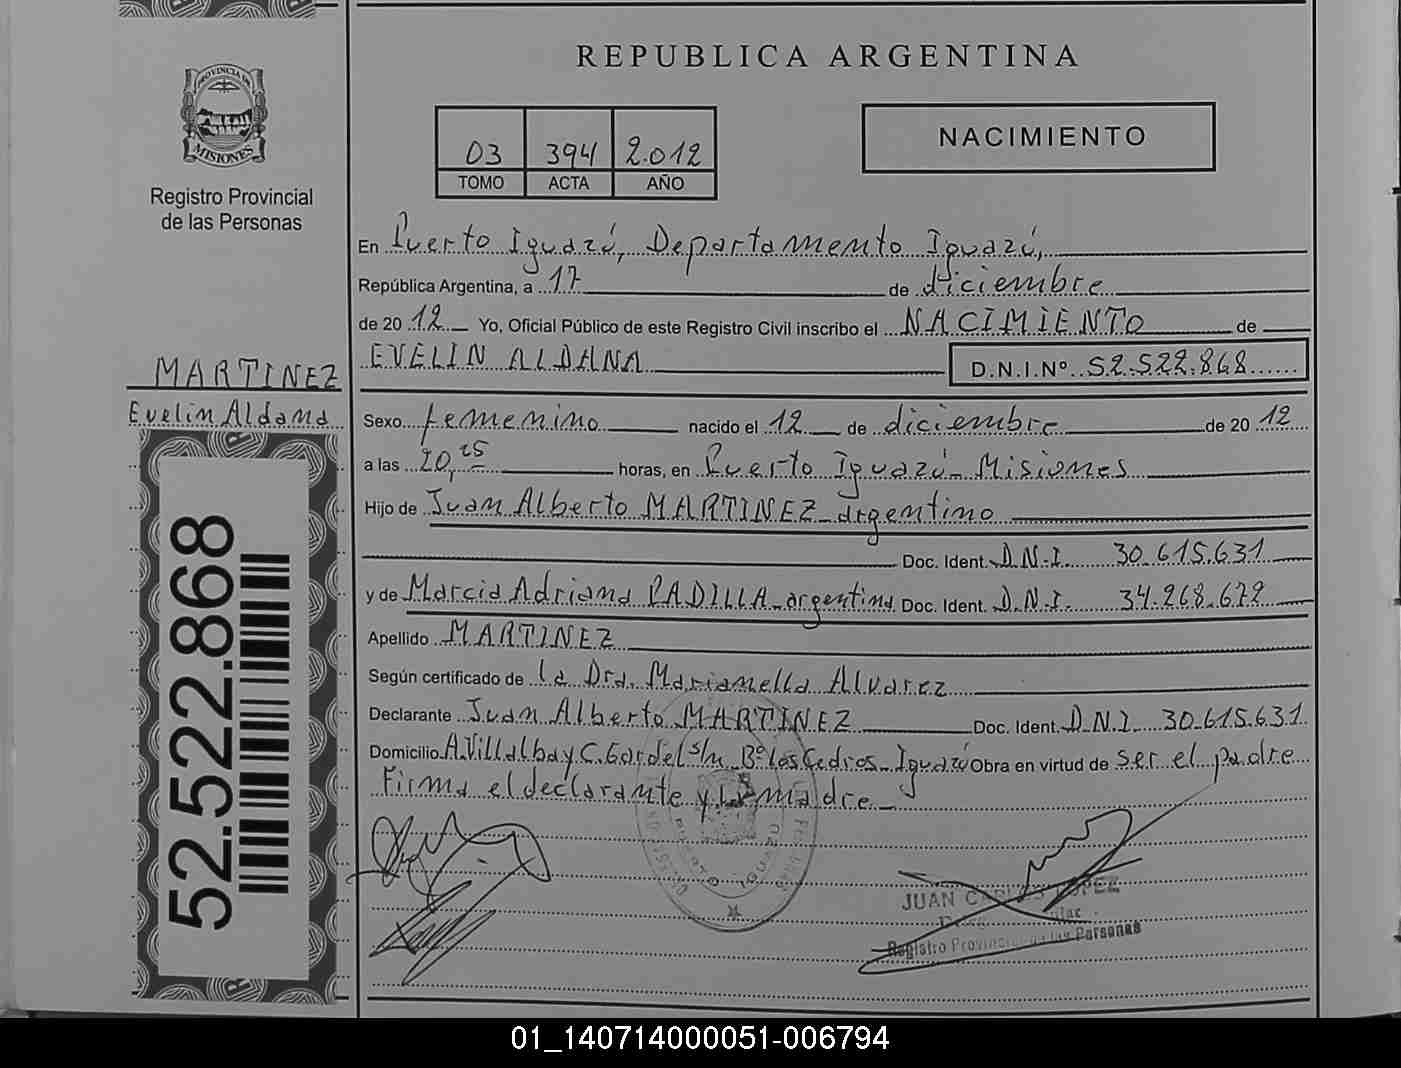 REPUBLICA ARGENTINA
PROVINCIA DE
MISIONES
Registro Provincial
de las Personas
03 394 2.012
TOMO ACTA AÑO
NACIMIENTO
En Puerto Iguazú, Departamento Iguazú,
República Argentina, a 17 de diciembre
de 2012 Yo, Oficial Público de este Registro Civil inscribo el NACIMIENTO de
EVELIN ALDANA D.N.I.Nº 52.522.868
MARTINEZ
Evelin Aldana
52.522.868
Sexo femenino nacido el 12 de diciembre de 2012
a las 20,25 horas, en Puerto Iguazú - Misiones
Hijo de Juan Alberto MARTINEZ - argentino
Doc. Ident. D.N.I. 30.615.631
y de Marcia Adriana PADILLA - argentina Doc. Ident. D.N.I. 34.268.672
Apellido MARTINEZ
Según certificado de la Dra. Marianella Alvarez
Declarante Juan Alberto MARTINEZ Doc. Ident. D.N.I. 30.615.631
Domicilio A. Villalba y C. Gardel s/n Bº Los Cedros - Iguazú Obra en virtud de ser el padre
Firma el declarante y la madre -
PUERTO IGUAZU
JUAN CARLOS LOPEZ
Registro Provincial de las Personas
01_140714000051-006794